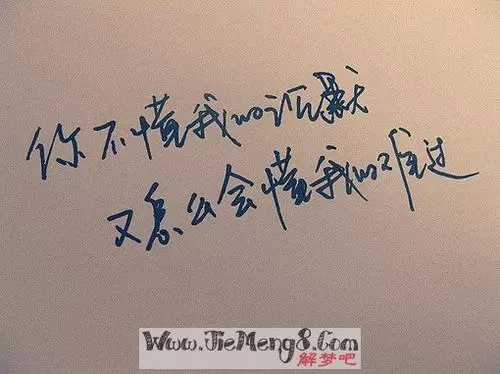 你不懂我的沉默
又怎么会懂我的难过
Www.JieMeng8.Com
解梦吧